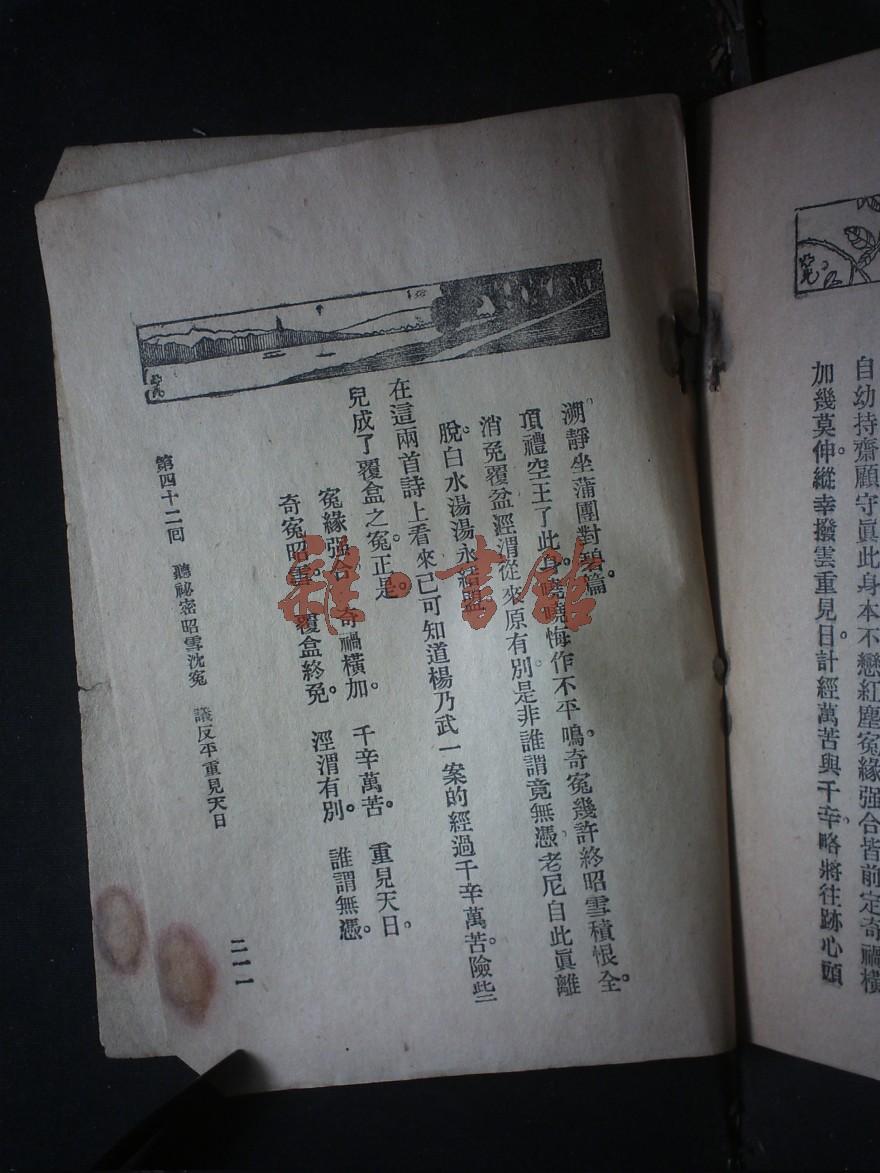 自幼持齋顧守眞此身本不戀紅塵冤緣强合皆前定奇禍橫
加幾莫伸。縱幸撥雲重見日。計經萬苦與千辛。略將往跡心頭
溯。靜坐蒲團對碧篇。
頂禮空王了此身。嘵嘵悔作不平鳴。奇冤幾許終昭雪積恨全
消免覆盆涇渭從來原有別。是非誰謂竟無憑。老尼自此眞離
脫。白水湯湯永結盟。
在這兩首詩上看來已可知道楊乃武一案的經過千辛萬苦。險些
兒成了覆盒之冤。正是。
冤緣强合。 奇禍橫加。 千辛萬苦。 重見天日。
奇冤昭雪。 覆盒終免。 涇渭有別。 誰謂無憑。
第四十二回 聽祕密昭雪沈冤 議反平重見天日
二一一
雜·書館